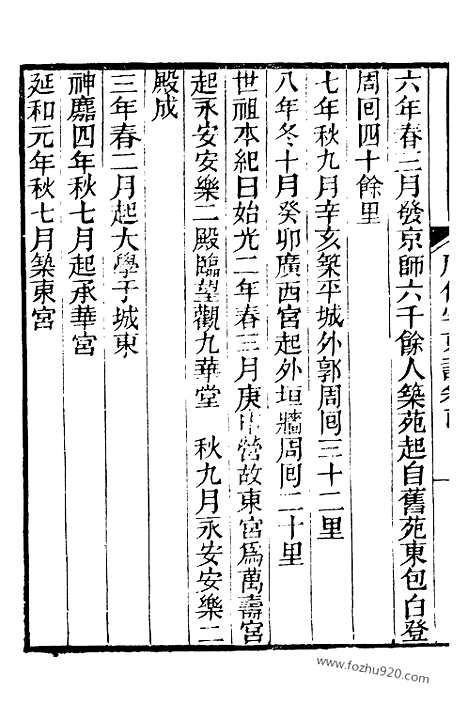 六年春三月發京師六千餘人築苑起自舊苑東包白登
周囘四十餘里
七年秋九月辛亥築平城外郭周囘三十二里
八年冬十月癸卯廣西宮起外垣牆周囘二十里
世祖本紀曰始光二年春三月庚申營故東宮爲萬壽宮
起永安安樂二殿臨望觀九華堂 秋九月永安安樂二
殿成
三年春二月起大學于城東
神䴥四年秋七月起承華宮
延和元年秋七月築東宮
www.fozhu920.com